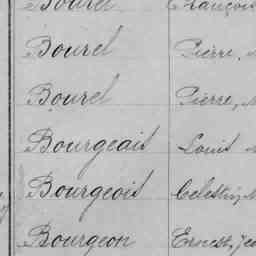 Bourel François
Bourel Pierre,
Bourel Pierre,
Bourgeais Louis
Bourgeois Celestin,
Bourgeon Ernest, Jea